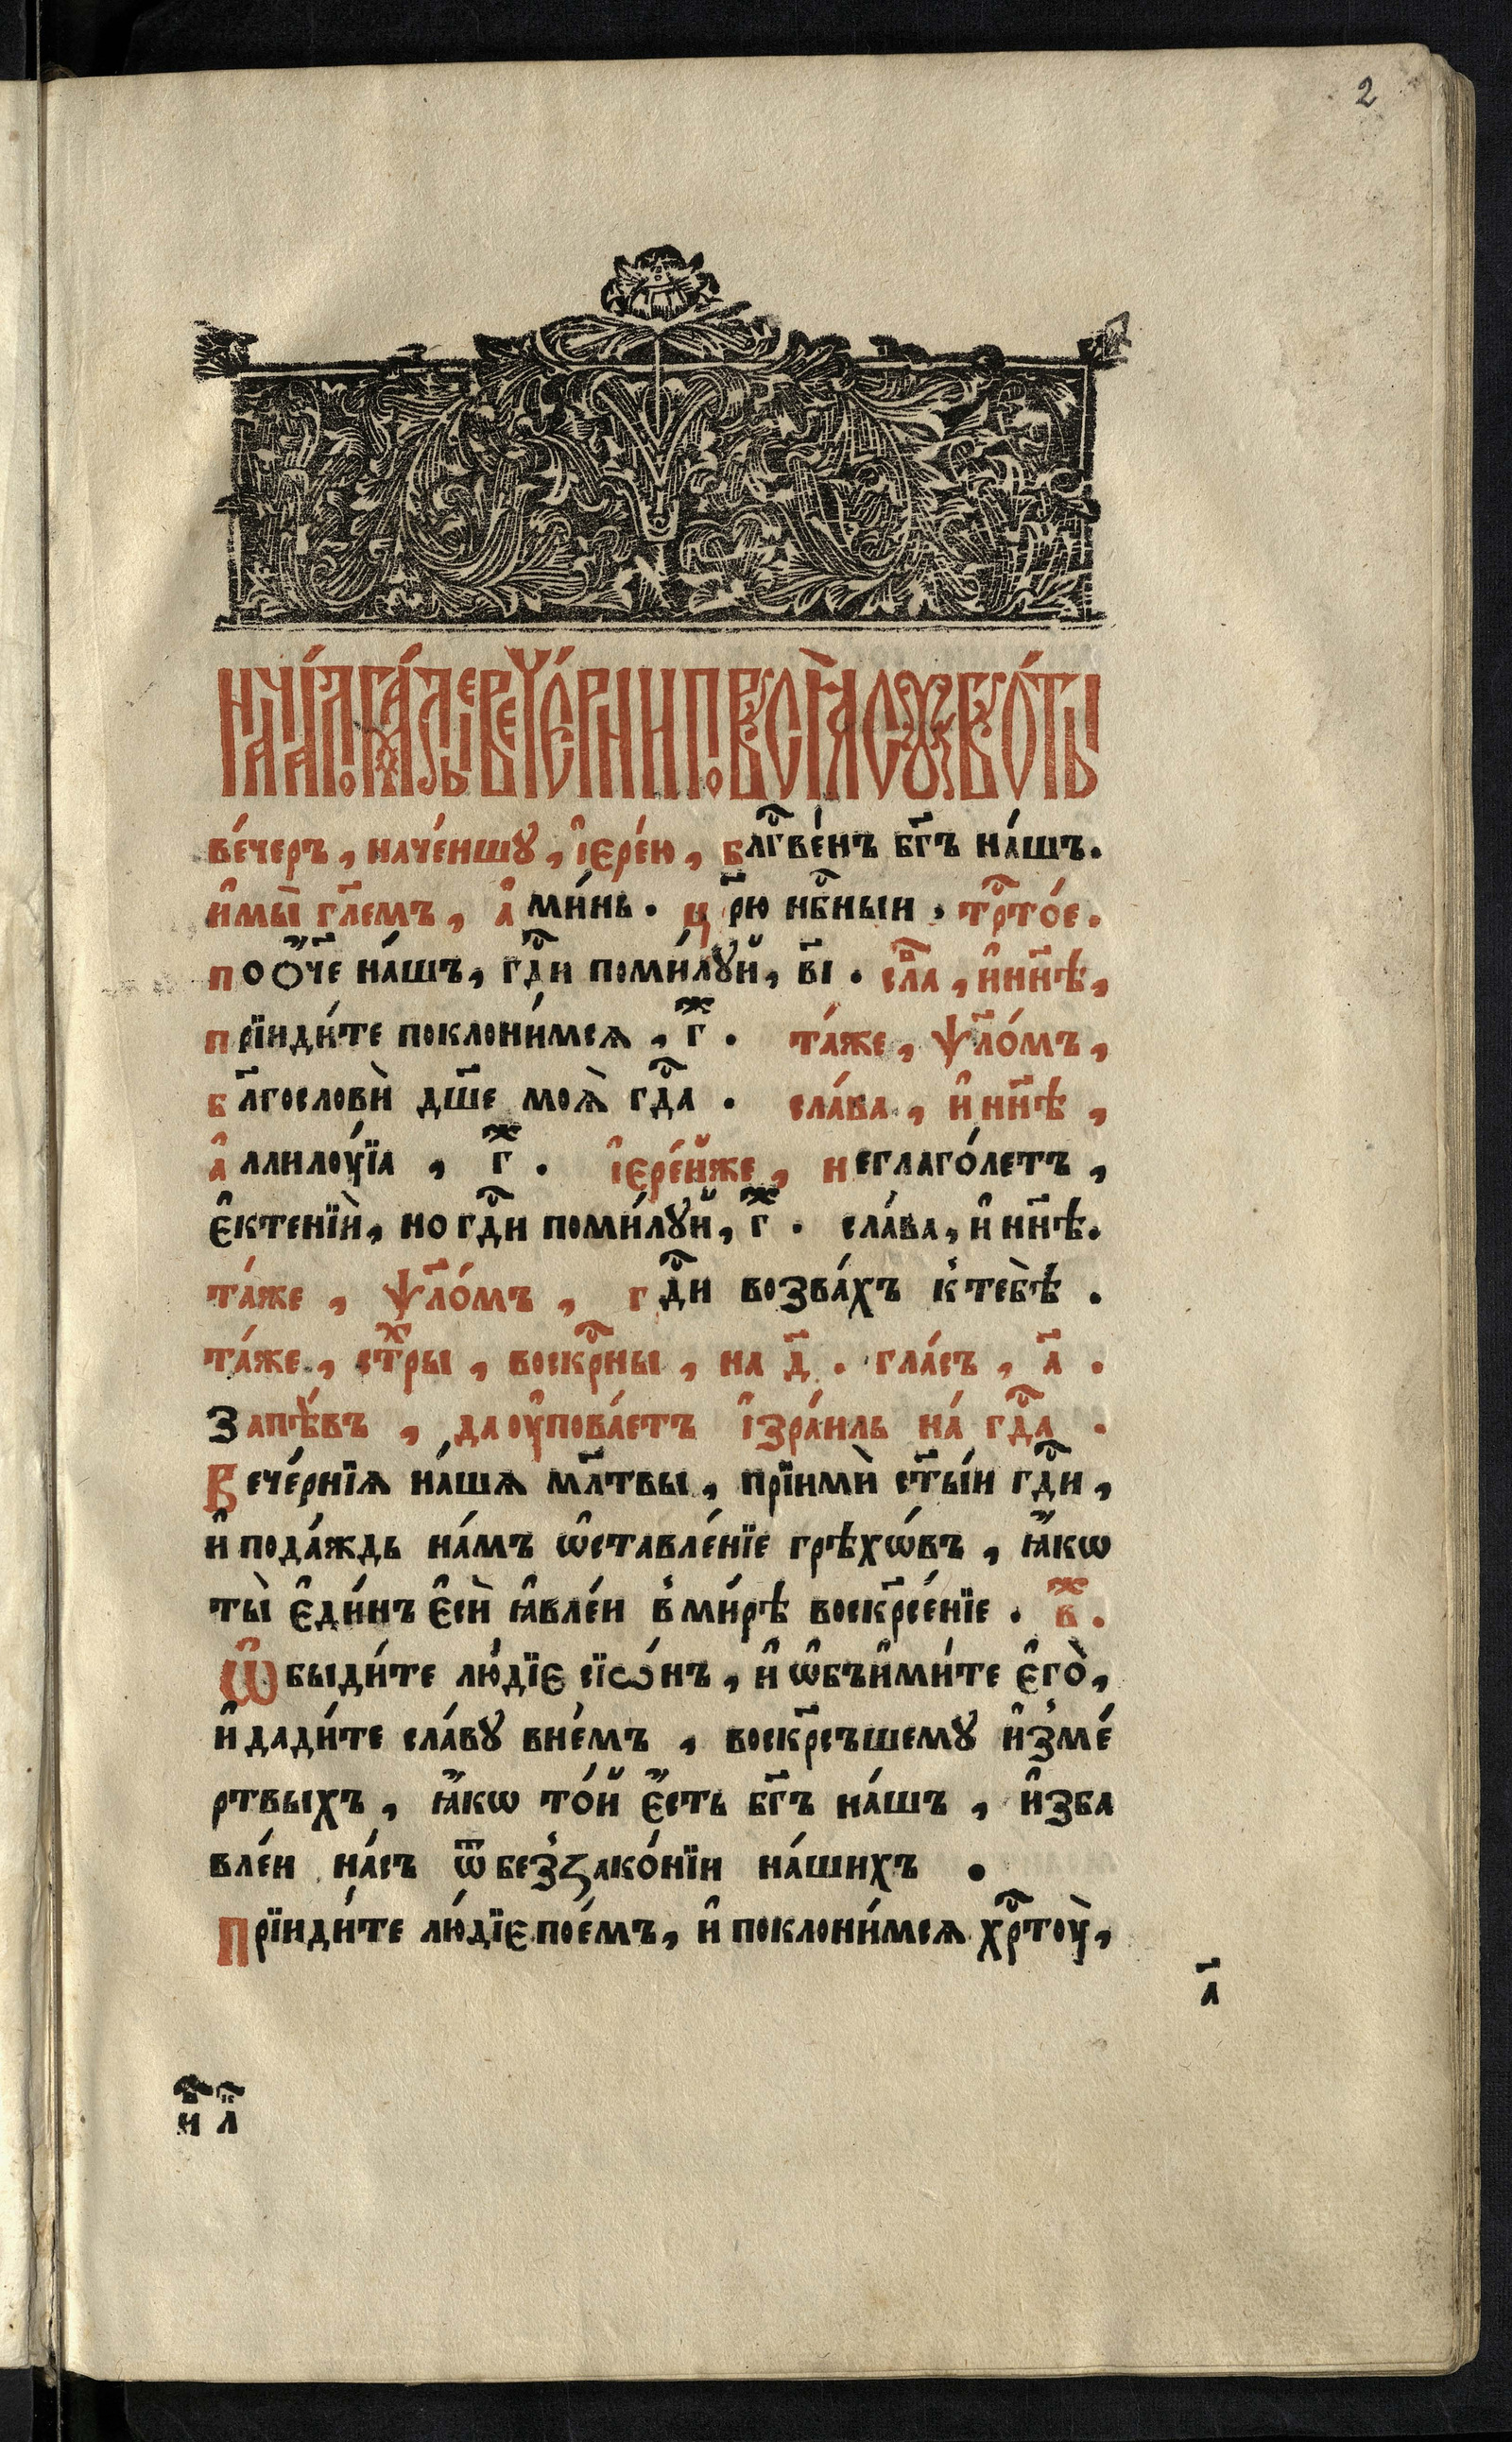 2
вече́ръ, наче́ншꙋ, і҆ере́ю, блгⷭ҇ве́нъ бг҃ъ на́шъ.
и҆мы̀ гл҃емъ, а҆ми́нь. цр҃ю нбⷭ҇ныи. трⷭ҇то́е.
поѻ҆́ч҃е на́шъ, гдⷭ҇и поми́лꙋй, в҃і. сла́ⷡ҇а, и҆нн҃ѣ,
прїиди́те поклони́мсѧ, гⷤ҃. та́же, ѱл҃о́мъ,
бл҃гословѝ дш҃е моѧ̀ гдⷭ҇а. сла́ва, и҆ нн҃ѣ,
а҆ллилоу́їа, гⷤ҃. і҆ере́йже, неглаго́летъ,
є҆ктенїѝ, но гдⷭ҇и поми́лꙋй, гⷤ҃. сла́ва, и҆ нн҃ѣ.
та́же, ѱл҃о́мъ, гдⷭ҇и возва́хъ к̾тебѣ̀.
та́же, стⷯры, воскрⷭ҇ны, на д҃. гла́съ, а҃.
Запѣ́въ, да оу҆пова́етъ і҆зра́иль на́ гдⷭ҇а.
Вече́рнїѧ на́шѧ мл҃твы, прїимѝ ст҃ы́и гдⷭ҇и,
и҆ пода́ждь на́мъ ѡ҆ставле́нїе грѣхѡ́въ, ꙗ҆́кѡ
ты̀ є҆ди́нъ є҆сѝ ꙗ҆вле́и в̾ми́рѣ воскр҃се́нїе. вⷤ҃.
Ѡ҆быди́те лю́дїє сїѡ́нъ, и҆ ѡ҆бъи҆ми́те є҆го̀,
и҆ дади́те сла́вꙋ вне́мъ, воскр҃съшемꙋ и҆з̾ме́
ртвыхъ, ꙗ҆́кѡ то́й є҆́сть бг҃ъ на́шъ, и҆зба
вле́и на́съ ѿ без̾зако́нїи на́шихъ.
Прїиди́те лю́дїє пое́мъ, и҆ поклони́мсѧ хрⷭ҇тоу̀,
а҃